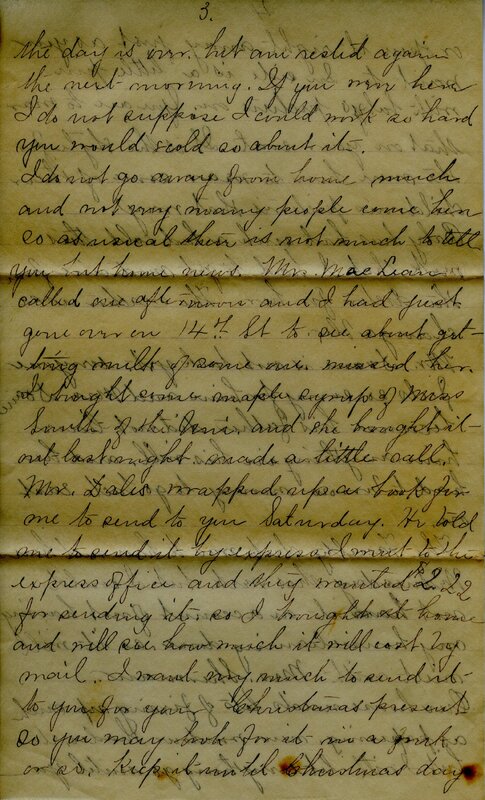 3.
the day is over. but am rested again
the next morning. If you were here
I do not suppose I could work so hard
you would scold so about it.
I do not go away from home much
and not very many people come here
so as usual there is not much to tell
you but home news. Mrs. MacLean
called one afternoon and I had just
gone over on 14th St to see about get-
ting milk of some one. missed her.
I bought some maple syrup of Miss
Smith of the Uni. and she brought it
out last night. made a little call.
Mr. Dales wrapped up a book for
me to send to you Saturday. He told
me to send it by express. I went to the
express office and they wanted $2.22
for sending it. so I brought it home
and will see how much it will cost by
mail. I want very much to send it
to you for your Christmas present
so you may look for it in a week
or so. Keep it until Christmas day